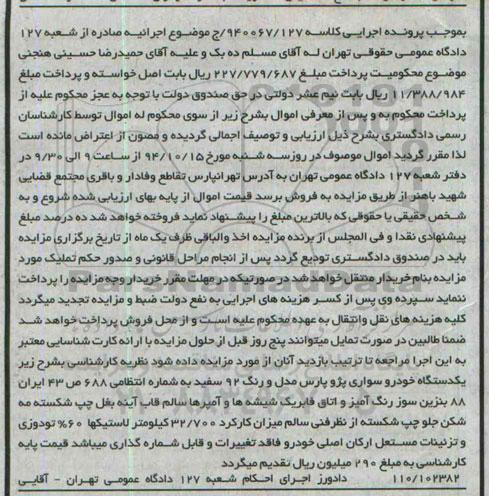 بموجب پرونده اجرایی کلاسه ۹۴۰۰۶۷/۱۲۷/ج موضوع اجرائیه صادره از شعبه ۱۲۷
دادگاه عمومی حقوقی تهران له آقای مسلم ده بک و علیه آقای حمیدرضا حسینی هنجنی
موضوع محکومیت پرداخت مبلغ ۲۲۷/۷۷۹/۶۸۷ ریال بابت اصل خواسته و پرداخت مبلغ
۱۱/۳۸۸/۹۸۴ ریال بابت نیم عشر دولتی در حق صندوق دولت با توجه به عجز محکوم علیه از
پرداخت محکوم به و پس از معرفی اموال بشرح زیر از سوی محکوم له اموال توسط کارشناسان
رسمی دادگستری بشرح ذیل ارزیابی و توصیف اجمالی گردیده و مصون از اعتراض مانده است
لذا مقرر گردید اموال موصوف در روزسه شنبه مورخ ۹۴/۱۰/۱۵ از ساعت ۹ الی ۹/۳۰ در
دفتر شعبه ۱۲۷ دادگاه عمومی تهران به آدرس تهرانپارس تقاطع وفادار و باقری مجتمع قضایی
شهید باهنر از طریق مزایده به فروش برسد قیمت اموال از پایه بهای ارزیابی شده شروع و به
شخص حقیقی یا حقوقی که بالاترین مبلغ را پیشنهاد نماید فروخته خواهد شد ده درصد مبلغ
پیشنهادی نقدا و فی المجلس از برنده مزایده اخذ والباقی ظرف یک ماه از تاریخ برگزاری مزایده
باید در صندوق دادگستری تودیع گردد پس از انجام مراحل قانونی و صدور حکم تملیک مورد
مزایده بنام خریدار منتقل خواهد شد در صورتیکه در مهلت مقرر خریدار وجه مزایده را پرداخت
ننماید سپرده وی پس از کسر هزینه های اجرایی به نفع دولت ضبط و مزایده تجدید میگردد
کلیه هزینه های نقل وانتقال به عهده محکوم علیه است و از محل فروش پرداخت خواهد شد
ضمنا طالبین در صورت تمایل میتوانند پنج روز قبل از حلول مزایده با ارائه کارت شناسایی معتبر
به این اجرا مراجعه تا ترتیب بازدید آنان از مورد مزایده داده شود نظریه کارشناسی بشرح زیر
یکدستگاه خودرو سواری پژو پارس مدل و رنگ ۹۲ سفید به شماره انتظامی ۶۸۸ ص ۴۳ ایران
۸۸ بنزین سوز رنگ آمیز و اتاق فابریک شیشه ها و آمپرها سالم قاب آینه بغل چپ شکسته مه
شکن جلو چپ شکسته از نظر فنی سالم میزان کارکرد ۳۲/۷۰۰ کیلومتر لاستیکها ۶۰% تودوزی
و تزئینات مستعل ارکان اصلی خودرو فاقد تغییرات و قابل شماره گذاری میباشد قیمت پایه
کارشناسی به مبلغ ۲۹۰ میلیون ریال تقدیم میگردد
۱۱۰/۱۰۲۳۸۲ دادورز اجرای احکام شعبه ۱۲۷ دادگاه عمومی تهران - آقایی